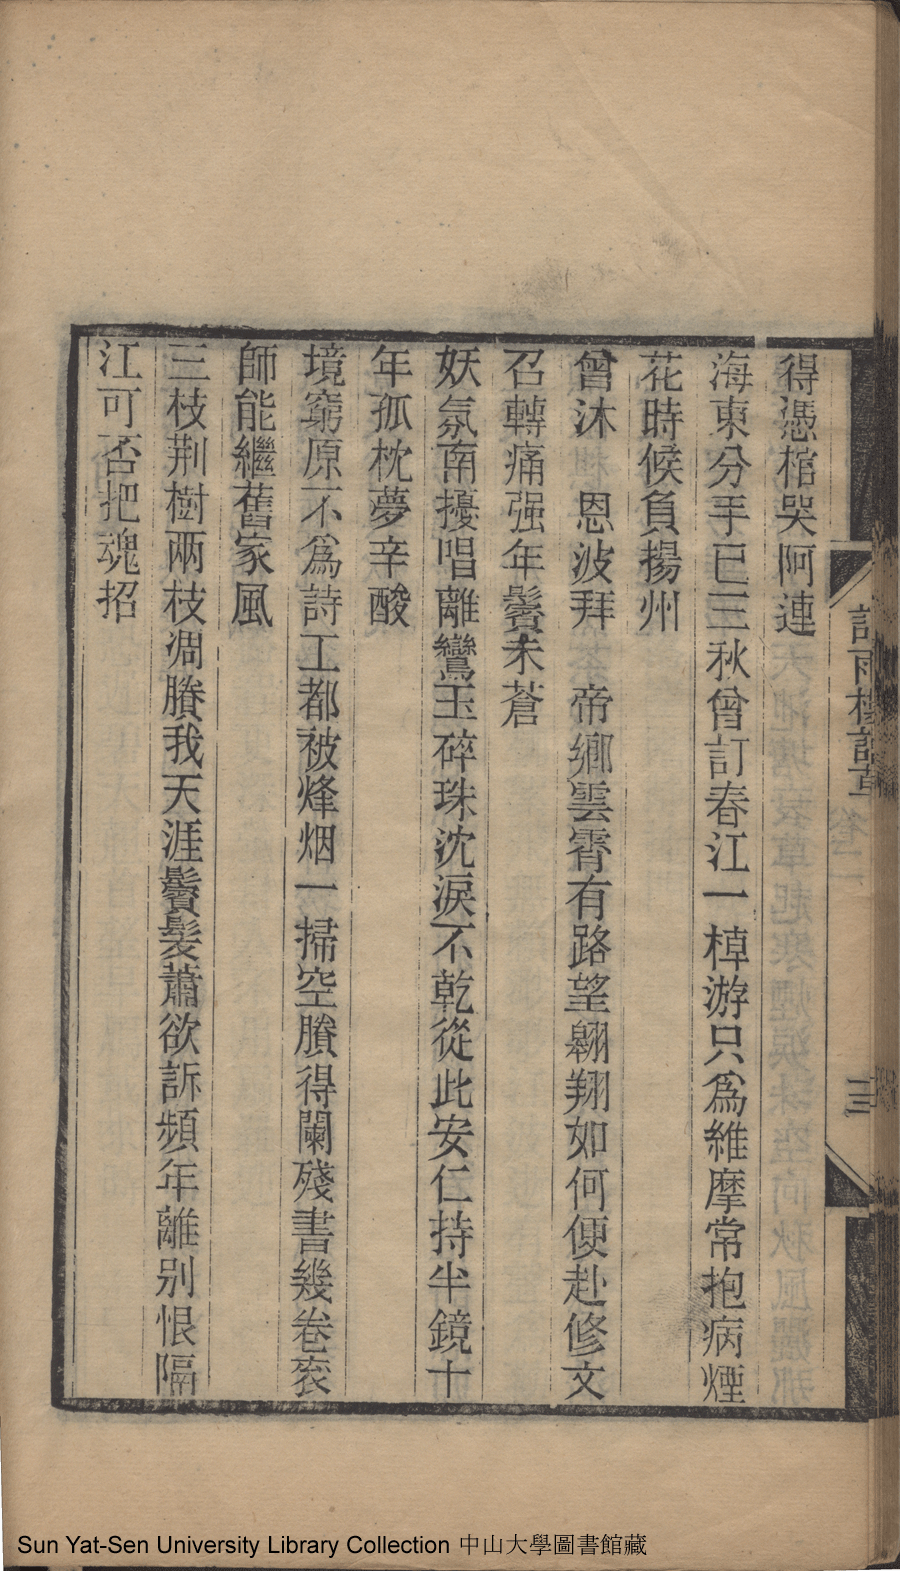 得憑棺哭阿連
海東分手已三秋曾訂春江一棹游只為維摩常抱病煙
花時候負揚州
曾沐　恩波拜　帝鄉雲霄有路望翱翔如何便赴修文
召轉痛强年鬢未蒼
妖氛南擾唱離鸞玉碎珠沈淚不乾從此安仁持半鏡十
年孤枕夢辛酸
境窮原不為詩工都被烽烟一掃空賸得闌殘書幾卷衮
師能繼舊家風
三枝荆樹兩枝凋賸我天涯鬢髮蕭欲訴頻年離别恨隔
江可否把魂招
雨樓
三
Sun Yat-Sen University Library Collection 中山大學圖書館藏